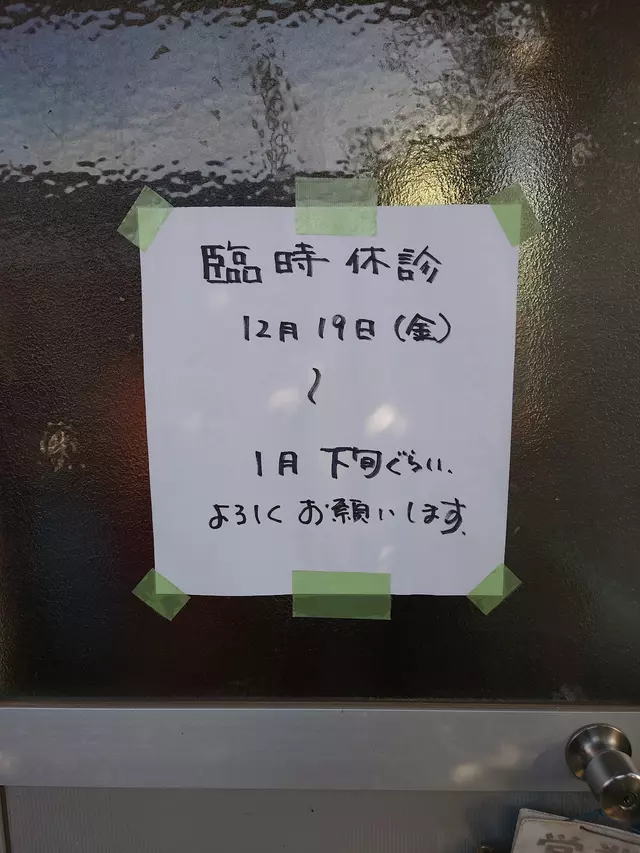 臨時休診
12月19日(金)
〜
1月 下旬ぐらい.
よろしくお願いします.
営業